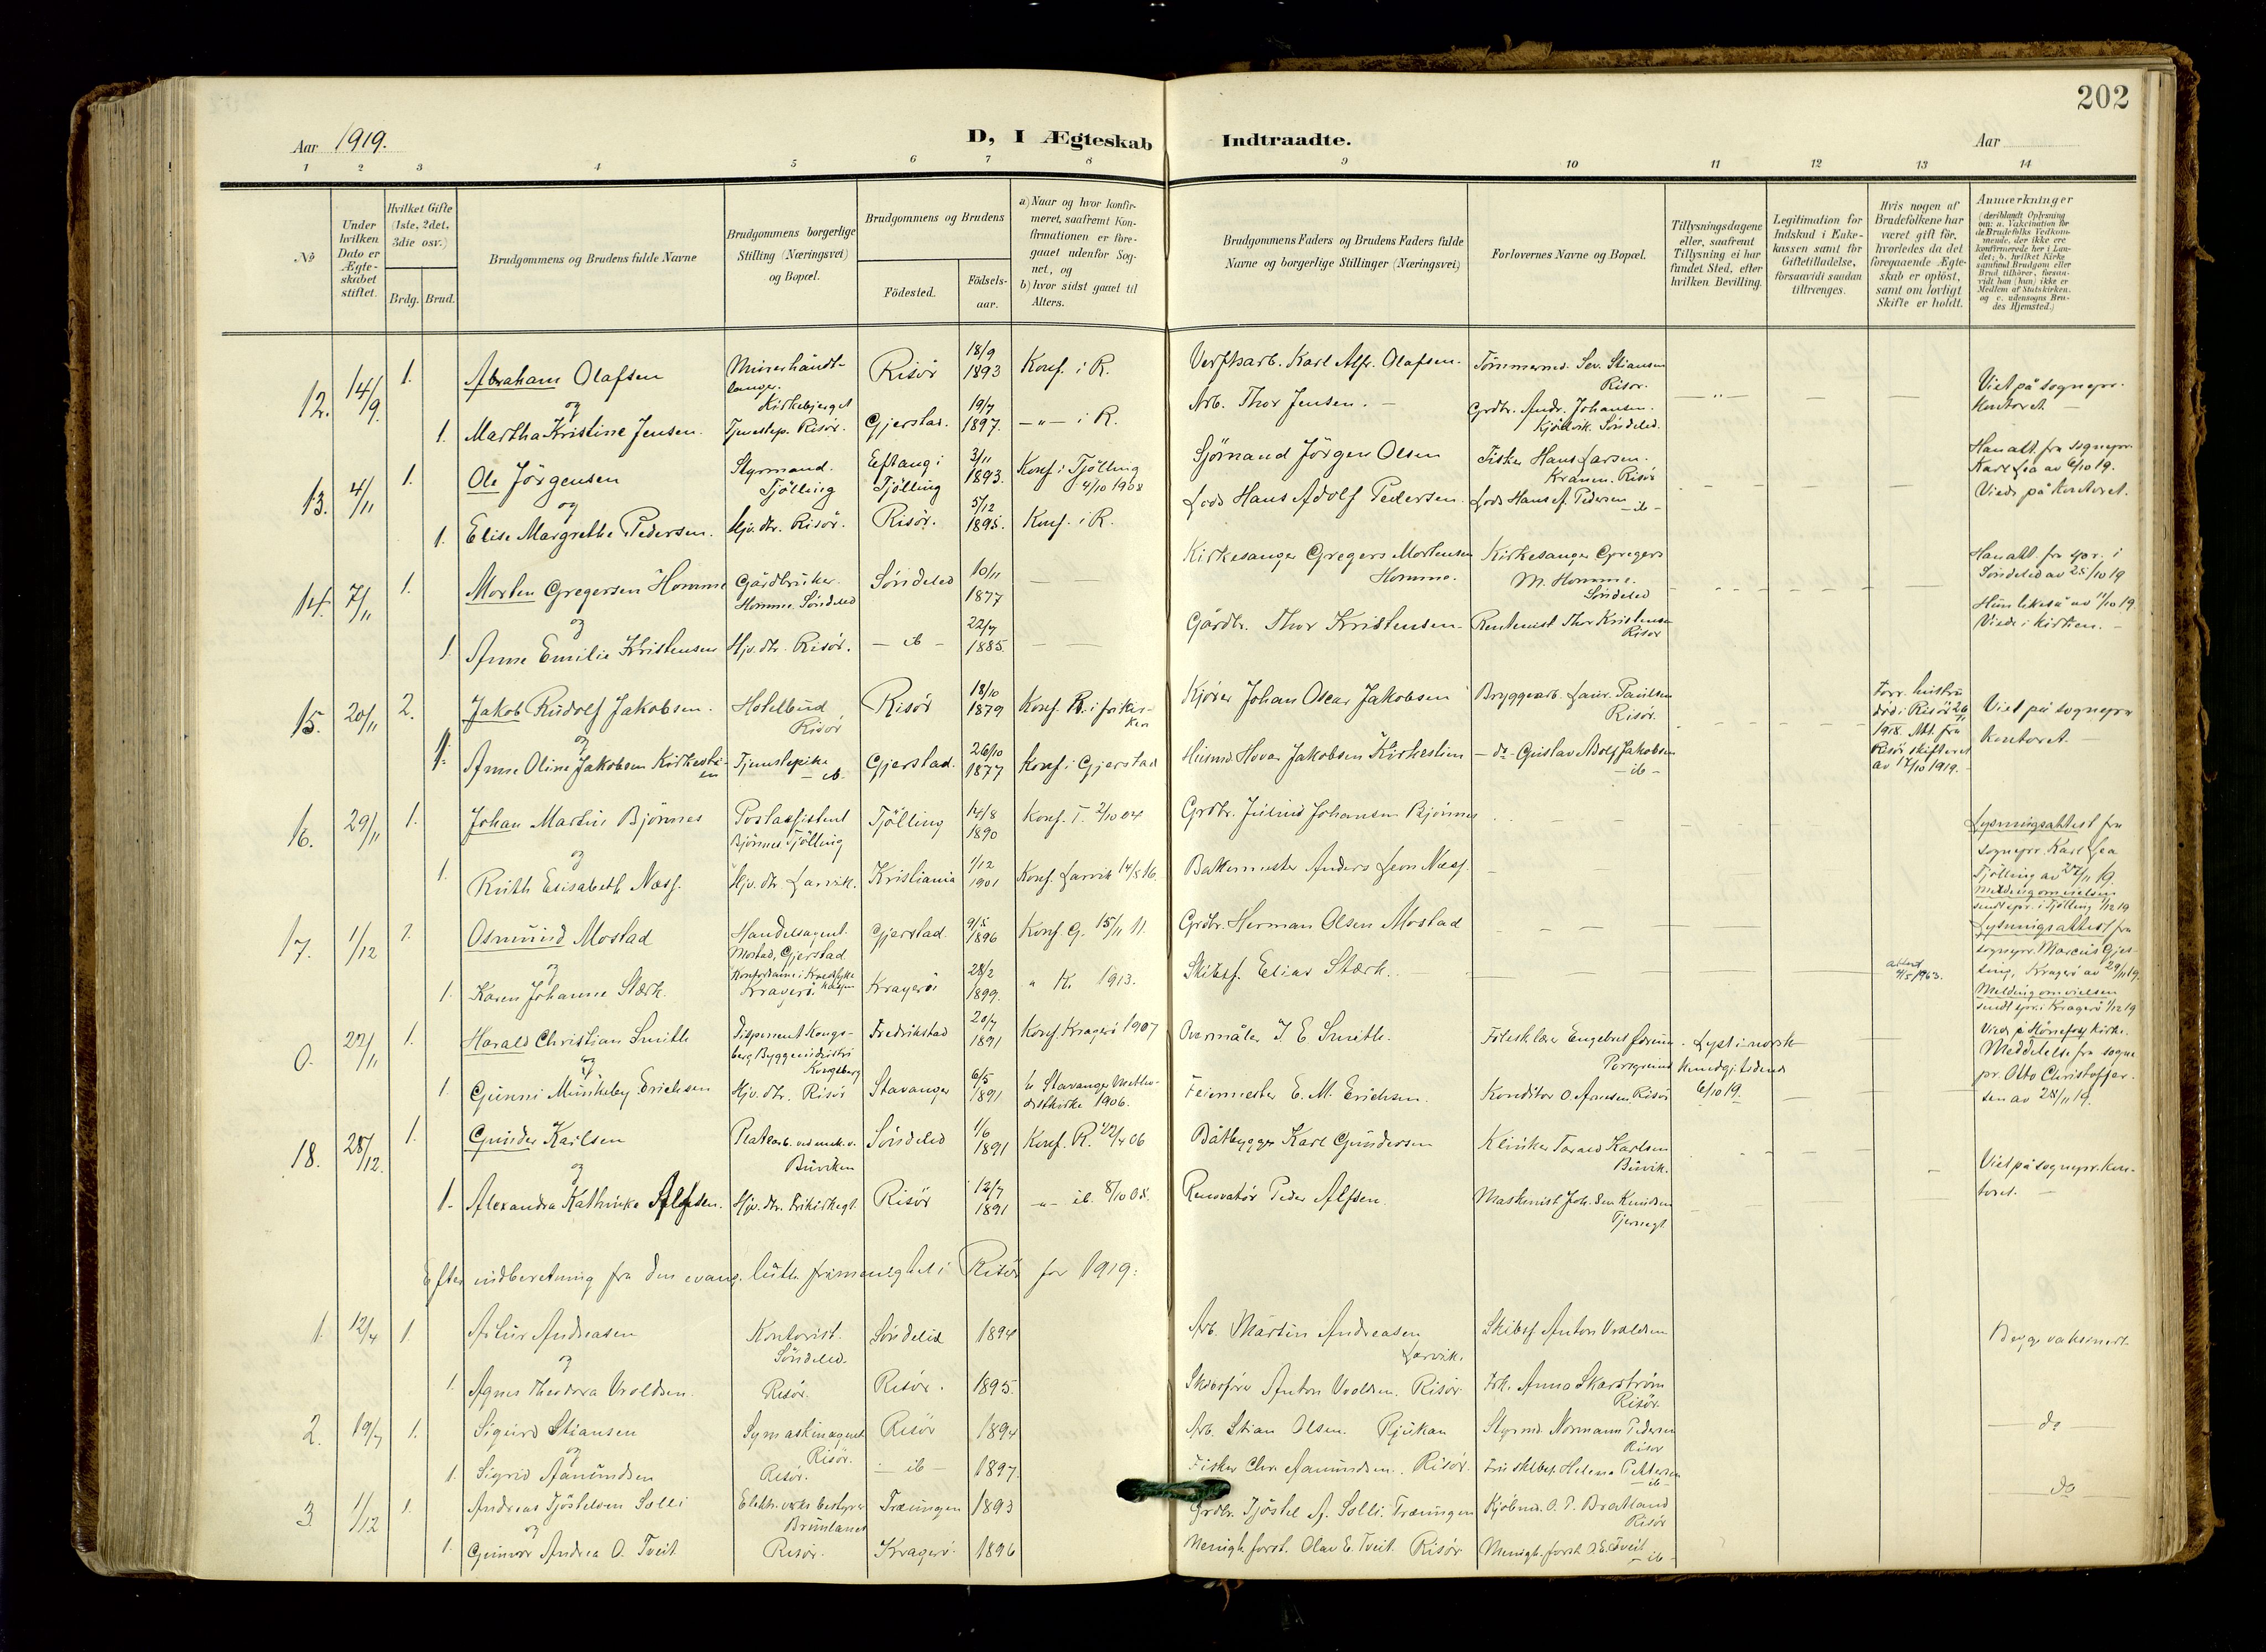 202
Aar 1919.
D, I Ægteskab Indtraadte.
Aar
1 2 3 4 5 6 7 8 9 10 11 12 13 14
No
Under hvilken Dato er Ægte-skabet stiftet.
Hvilket Gifte (1ste, 2det, 3die osv.)
Brdg. Brud.
Brudgommens og Brudens fulde Navne
Brudgommens borgerlige Stilling (Næringsvei) og Bopæl.
Brudgommens og Brudens
Födested.
Födsels-aar.
a) Naar og hvor konfir-meret, saafremt Kon-firmationen er fore-gaaet udenfor Sog-net, og
b) hvor sidst gaaet til Alters.
Brudgommens Faders og Brudens Faders fulde Navne og borgerlige Stillinger (Næringsvei)
Forlovernes Navne og Bopæl.
Tillysningsdagene eller, saafremt Tillysning ei har fundet Sted, efter hvilken Bevilling.
Legitimation for Indskud i Enke-kassen samt for Giftetilladelse, forsaavidt saadan tiltrænges.
Hvis nogen af Brudefolkene har været gift för, hvorledes da det foregaaende Ægte-skab er oplöst, samt om lovligt Skifte er holdt.
Anmærkninger (deriblandt Oplysning om: a. Vakcination for de Brudefolks Vedkom-mende, der ikke ere konfirmerede her i Lan-det; b. hvilket Kirke-samfund Brudgom eller Brud tilhörer, forsaa-vidt han (hun) ikke er Medlem af Statskirken. og c. udensogns Bru-des Hjemsted.)
12. 14/9 1. Abraham Olafsen Murerhåndt-langer. Kirkebjerget Risör 18/9 1893 Konf. i R. Verftsarb. Karl Alfr. Olafsen. Tömmermd. Sev. Stiansen Risör. Viet på sognepr. kontoret
og
1. Martha Kristine Jensen. Tjenestep. Risör. Gjerstad. 19/7 1897. –"– i R. Arb. Thor Jensen. Grdbr. Andr. Johansen. Söndeled.
13. 4/11 1. Ole Jörgensen Styrmand. Tjölling Eftang i Tjölling 3/11 1893. Konf. i Tjölling 4/10 1908 Sjömand Jörgen Olsen Fisker Hans Larsen. Kranen. Risör Han att. fra sognepr. Karl Lea av 6/10 19. Viede på kontoret.
og
1. Elise Margrethe Pedersen. Hjv. dtr. Risör. Risör. 5/12 1895. Konf. i R. Lods Hans Adolf Pedersen. Lods Hans A. Pedersen – ib –
14. 7/11 1. Morten Gregersen Homme Gårdbruker. Homme. Söndeled Söndeled 10/11 1877 Kirkesanger Gregers Mortensen Homme. Kirkesanger Gregers M. Homme. Söndeled Han att. fra spr. i Söndeled av 25/10 19 Hun likeså av 11/10 19. Viede i kirken.
og
1. Anne Emilie Kristensen Hjv. dtr. Risör. – ib – 22/7 1885. Gårdbr. Thor Kristensen Rentenist Thor Kristensen Risör
15. 20/11 2. Jakob Rudolf Jakobsen. Hotelbud Risör Risör 18/10 1879 Konf. R. i frikir-ken Kjörer Johan Oscar Jakobsen Bryggearb. Laur. Paulsen Risör. Forr. hustru död i Risör 26/11 1918. Att. fra Risör skifteret av 17/10 1919. Viet på sognepr kontoret.
og
1. Anne Oline Jakobsen Kirkesti-en Tjenstepike – ib. Gjerstad. 26/10 1877 Konf. i Gjerstad Husmd. Hovar Jakobsen Kirkestien – do – Gustav Adolf Jakobsen – ib –
16. 29/11 1. Johan Martin Bjönnes Postassistent Bjönnes Tjölling Tjölling 14/8 1890 Konf. T. 2/10 04 Grdbr. Julius Johansen Bjönnes Lysningsattest fra sognepr. Karl Lea Tjölling av 27/11 19. Melding om vielsen sendt spr. i Tjölling 1/12 19
og
1. Ruth Elisabeth Næss. Hjv. dtr. Larvik. Kristiania 1/12 1901 Konf. Larvik 14/5 16. Bakermester Anders Leon Næss.
17. 1/12 1. Osmund Mostad Handelsagent. Mostad, Gjerstad Gjerstad. 9/5 1896 Konf. G. 15/11 11. Grdbr. Herman Olsen Mostad Lysningsattest fra sognepr. Marcus Gjes-sing, Kragerö av 29/11 19. Melding om vielsen sendt spr. i Kragerö 1/12 19
og
1. Karen Johanne Stærk. Kragerö. Kragerö. 28/2 1899. " K. 1913. Skibsf. Elias Stærk. attest 4/5 1963.
0. 22/11 1. Harald Christian Smith Disponent Kongs-berg Byggeindustri Kongsberg Fredrikstad 20/7 1891 Konf. Kragerö 1907 Ovrmåler J. E. Smith. Engebret Porsgrund Lyst i norsk kundgj. tidend 6/10 19. Viede i Hönefoss kirke. Meddelelse fra sogne pr. Otto Christoffer-sen av 28/11 19.
og
1. Gunni Munkeby Erichsen Hjv. dtr. Risör Stavanger 6/5 1891 Stavanger Metho-distkirke 1906. Feiermester E. M. Erichsen. Konditor O. Arnesen. Risör
18. 28/12. 1. Gunder Karlsen Platearb. Buviken Söndeled 1/6 1891 Konf. R. 22/4 06 Båtbygger Karl Gundersen Klinker Torald Karlsen Buvik. Viet på sognepr. kon-toret.
og
1. Alexandra Kathinka Alfsen. Hjv. dtr. Frikirkegt. Risör 12/7 1891 –"– ib. 8/10 05. Renovatör Peder Alfsen Maskinist Joh. Sev. Knudsen Tjernegt.
Efter indberetning fra den evang. luth. frimenighet i Risör for 1919:
1. 12/4 1. Artur Andreasen Kontorist. Söndeled. Söndeled 1894 Arb. Martin Andreasen Larvik. Skibsf. Anton Uvoldsen Begge vaksinert
og
1. Agnes Theodora Uvoldsen. Risör. Risör. 1895. Skibsförer Anton Uvoldsen. Risör Frk. Anna Skarström Risör.
2. 19/7 1. Sigurd Stiansen Symaskinagent Risör. Risör 1894 Arb. Stian Olsen. Rjukan Styrmd. Normann Pedersen Risör do
og
1. Sigrid Aanundsen Risör. – ib – 1897. Fisker Chr. Aanundsen. Risör. Fru skibsf. Helene Pettersen – ib –
3. 1/12 1. Andreas Tjöstelsen Solli Elektr. verks bestyrer Brunlanes Træungen 1893 Grdbr. Tjöstel A. Solli. Træungen Kjöbmd. O. T. Bratland Risör do
og
1. Gunvor Andrea O. Tveit. Risör. Kragerö. 1896 Menigh. forst. Olav E. Tveit. Risör Menigh. forst O. E. Tveit – ib –